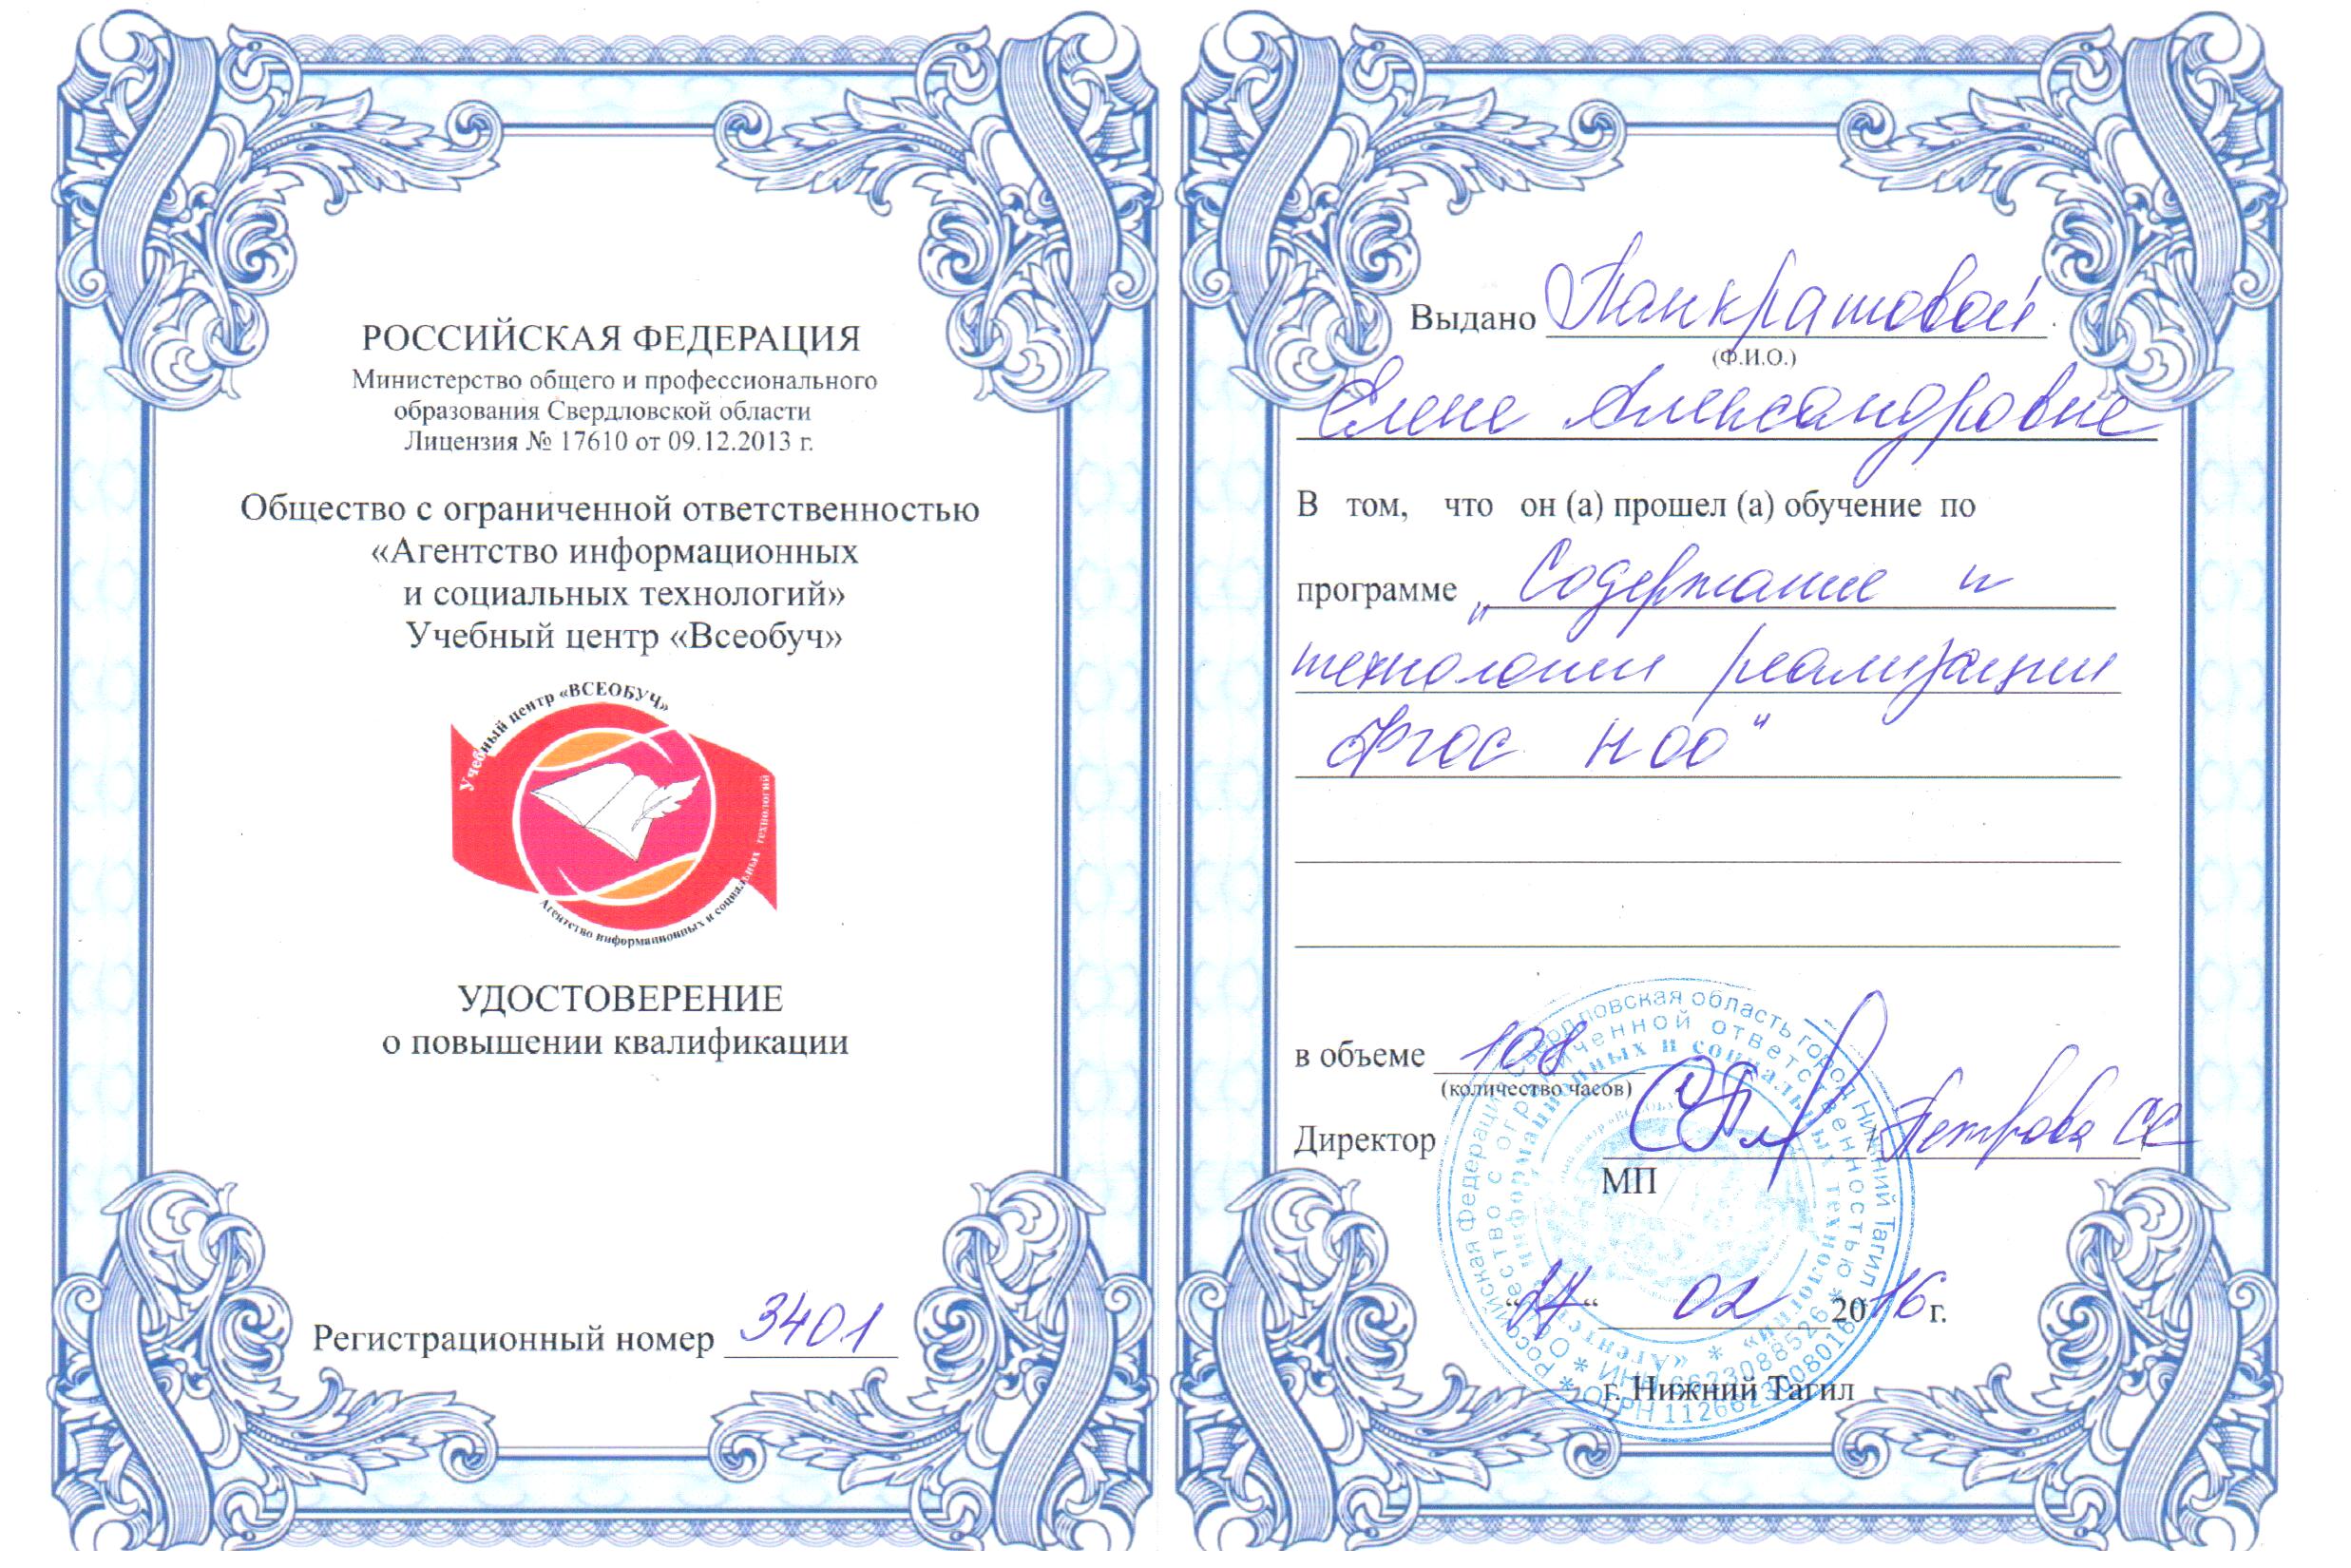 РОССИЙСКАЯ ФЕДЕРАЦИЯ
Министерство общего и профессионального
образования Свердловской области
Лицензия № 17610 от 09.12.2013 г.
Общество с ограниченной ответственностью
«Агентство информационных
и социальных технологий»
Учебный центр «Всеобуч»
Учебный центр «ВСЕОБУЧ»
Агентство информационных и социальных технологий
УДОСТОВЕРЕНИЕ
о повышении квалификации
Регистрационный номер 3401
Выдано Панкратовой
(Ф.И.О.)
Елене Александровне
В том, что он (а) прошел (а) обучение по
программе „Содержание и
технологии реализации
ФГОС НОО"
в объеме 108
(количество часов)
Директор / Петрова СС
МП
“27“ 02 2016 г.
г. Нижний Тагил
* Российская Федерация Свердловская область город Нижний Тагил
Общество с ограниченной ответственностью
«Агентство информационных и социальных технологий»
* ИНН 6623088526 *